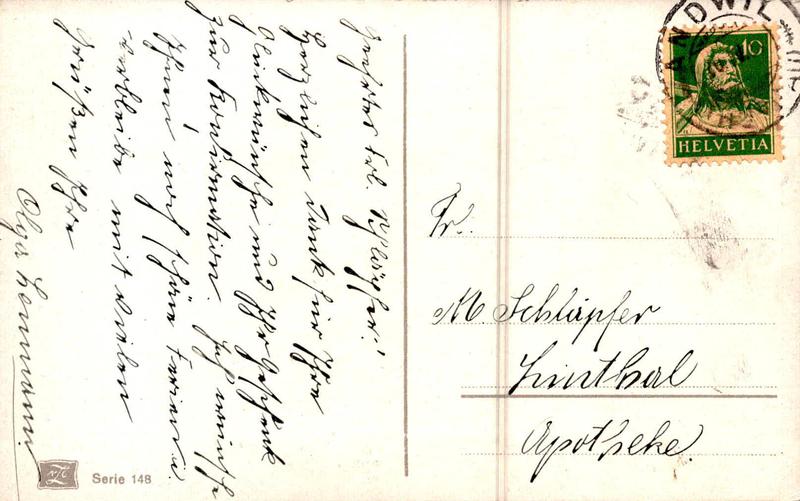 Geehrtes Frl. Schläpfer!
Herzlichen Dank für Ihre
Glückwünsche und Ihr Geschenk
zur Konfirmation. Ich wünsche
Ihnen noch schöne Ferien u.
verbleibe mit vielen
Grüßen Ihre
Olga Lenmann
10
HELVETIA
Fr.
M. Schläpfer
Linthal
Apotheke.
Serie 148